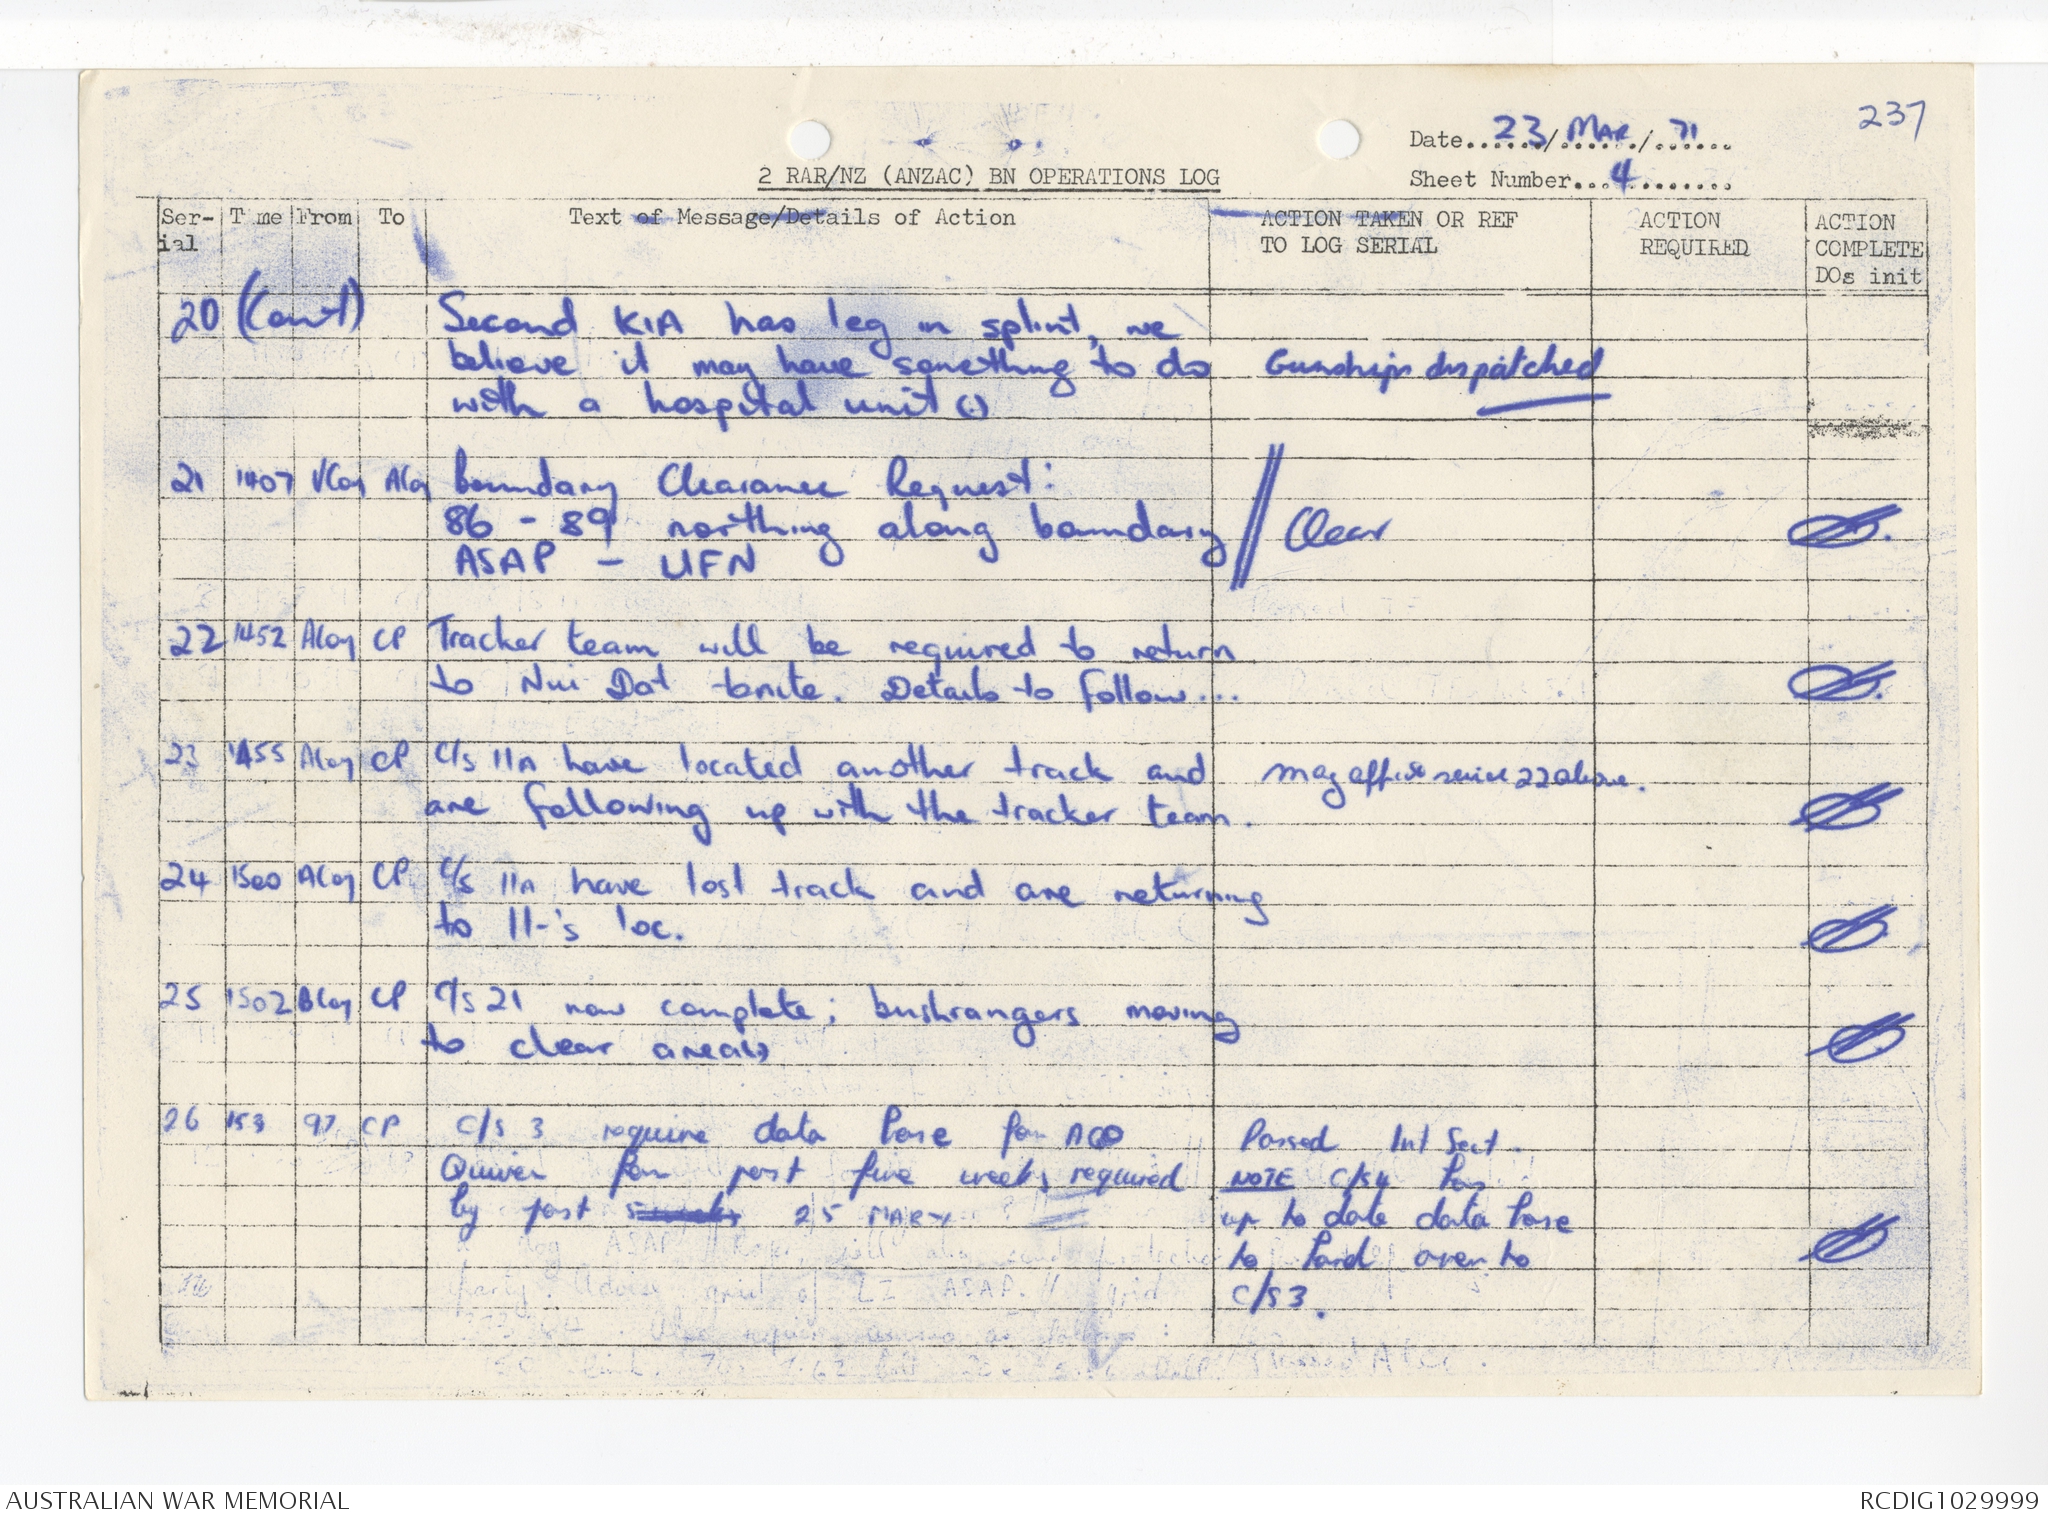 237
Date 23/MAR/71
2 RAR/NZ (ANZAC) BN OPERATIONS LOG
Sheet Number 4
Ser-ial Time From To Text of Message/Details of Action ACTION TAKEN OR REF TO LOG SERIAL ACTION REQUIRED ACTION COMPLETE DOs init
20 (Cont) Second KIA has leg in splint, we
believe it may have something to do Gunships dispatched
with a hospital unit (.)
21 1407 VCoy ACoy boundary Clearance Request:
86 - 89 northing along boundary // Clear
ASAP - UFN
22 1452 ACoy CP Tracker team will be required to return
to Nui Dat tonite. Details to follow...
23 1455 ACoy CP C/S 11A have located another track and may effect serial 22 above.
are following up with the tracker team.
24 1500 ACoy CP C/S 11A have lost track and are returning
to 11-'s loc.
25 1502 BCoy CP C/S 21 now complete; bushrangers moving
to clear area(s)
26 153 97 CP C/S 3 require data base for AO Passed Int Sect.
Quiver for past five weeks required NOTE C/S4 has
by post 25 MARY up to date data base
to hand over to
C/S3.
AUSTRALIAN WAR MEMORIAL RCDIG1029999